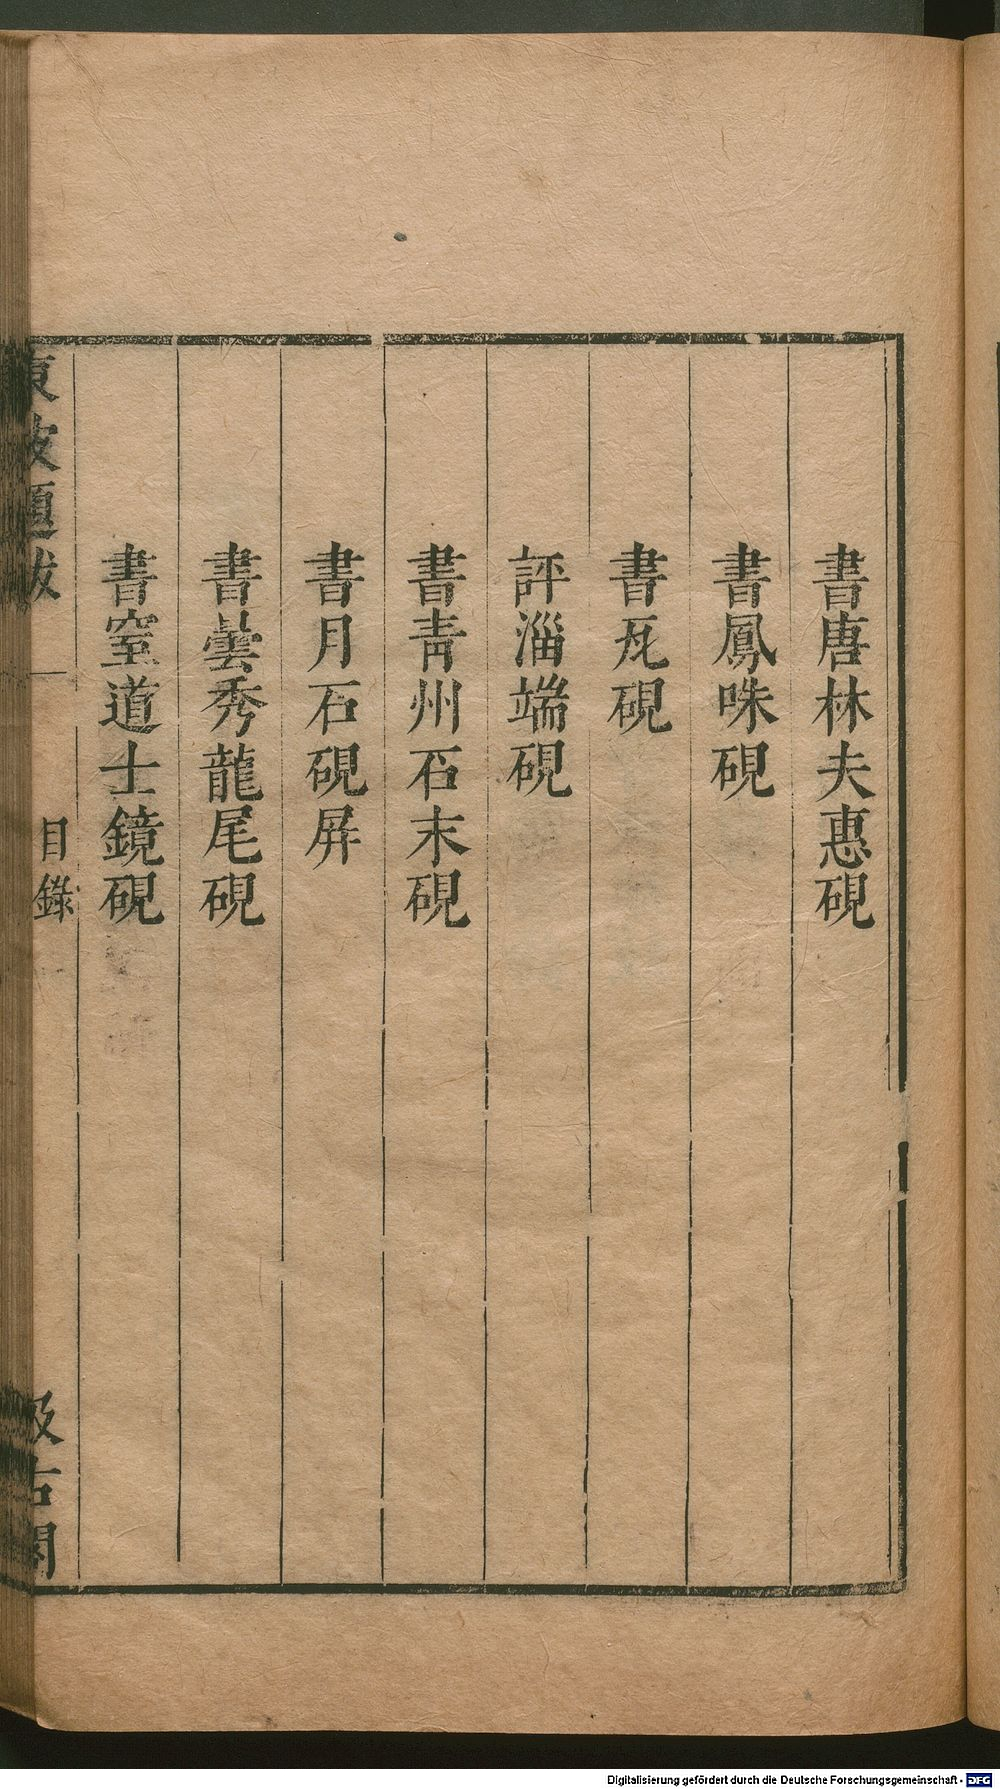 書唐林夫惠硯
書鳳咮硯
書瓦硯
評淄端硯
書青州石末硯
書月石硯屏
書曇秀龍尾硯
書窒道士鏡硯
東坡題跋
目錄
汲古閣
Digitalisierung gefördert durch die Deutsche Forschungsgemeinschaft - DFG